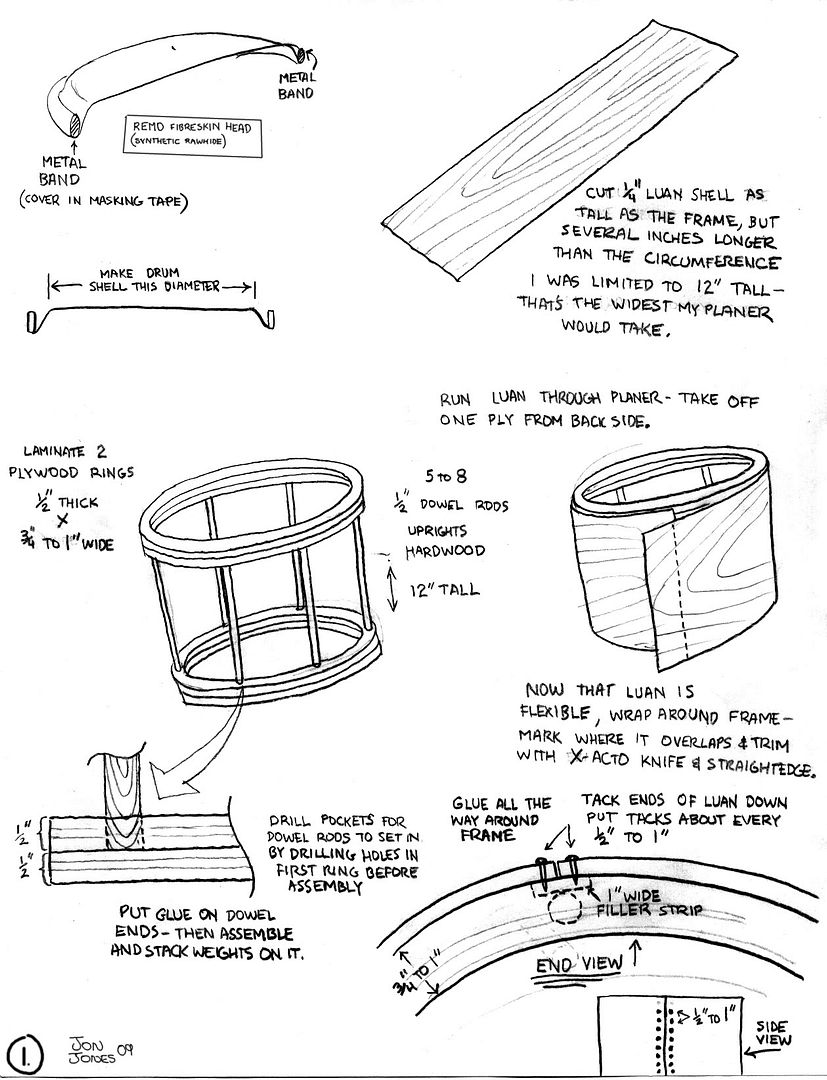 METAL
BAND
REMO FIBRESKIN HEAD
(SYNTHETIC RAWHIDE)
METAL
BAND
(COVER IN MASKING TAPE)
CUT 1/4" LUAN SHELL AS
TALL AS THE FRAME, BUT
SEVERAL INCHES LONGER
THAN THE CIRCUMFERENCE
I WAS LIMITED TO 12" TALL -
THAT'S THE WIDEST MY PLANER
WOULD TAKE.
MAKE DRUM
SHELL THIS DIAMETER
RUN LUAN THROUGH PLANER - TAKE OFF
ONE PLY FROM BACK SIDE.
LAMINATE 2
PLYWOOD RINGS
1/2" THICK
X
3/4" TO 1" WIDE
5 TO 8
1/2" DOWEL RODS
UPRIGHTS
HARDWOOD
12" TALL
NOW THAT LUAN IS
FLEXIBLE, WRAP AROUND FRAME -
MARK WHERE IT OVERLAPS & TRIM
WITH X-ACTO KNIFE & STRAIGHTEDGE.
1/2"
1/2"
DRILL POCKETS FOR
DOWEL RODS TO SET IN
BY DRILLING HOLES IN
FIRST RING BEFORE
ASSEMBLY
PUT GLUE ON DOWEL
ENDS - THEN ASSEMBLE
AND STACK WEIGHTS ON IT.
GLUE ALL THE
WAY AROUND
FRAME
TACK ENDS OF LUAN DOWN
PUT TACKS ABOUT EVERY
1/2" TO 1"
1" WIDE
FILLER STRIP
3/4" TO 1"
END VIEW
1/2" TO 1"
SIDE
VIEW
1.
JON
JONES 09